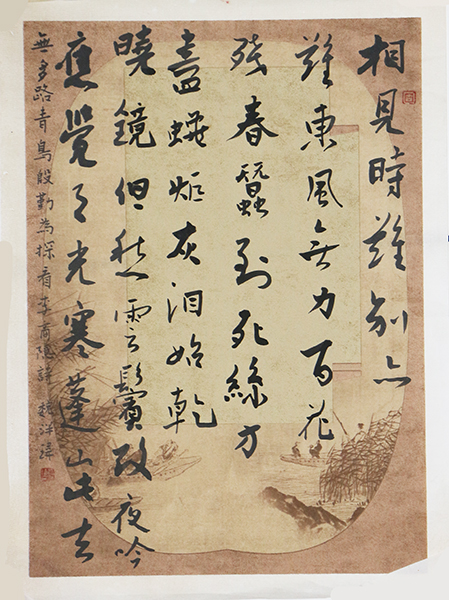 相見時難別亦
難東風無力百花
殘春蠶到死絲方
盡蠟炬灰泪始乾
曉鏡但愁雲鬢改夜吟
應覺月光寒蓬山此去
無多路青鳥殷勤為探看李商隱詩